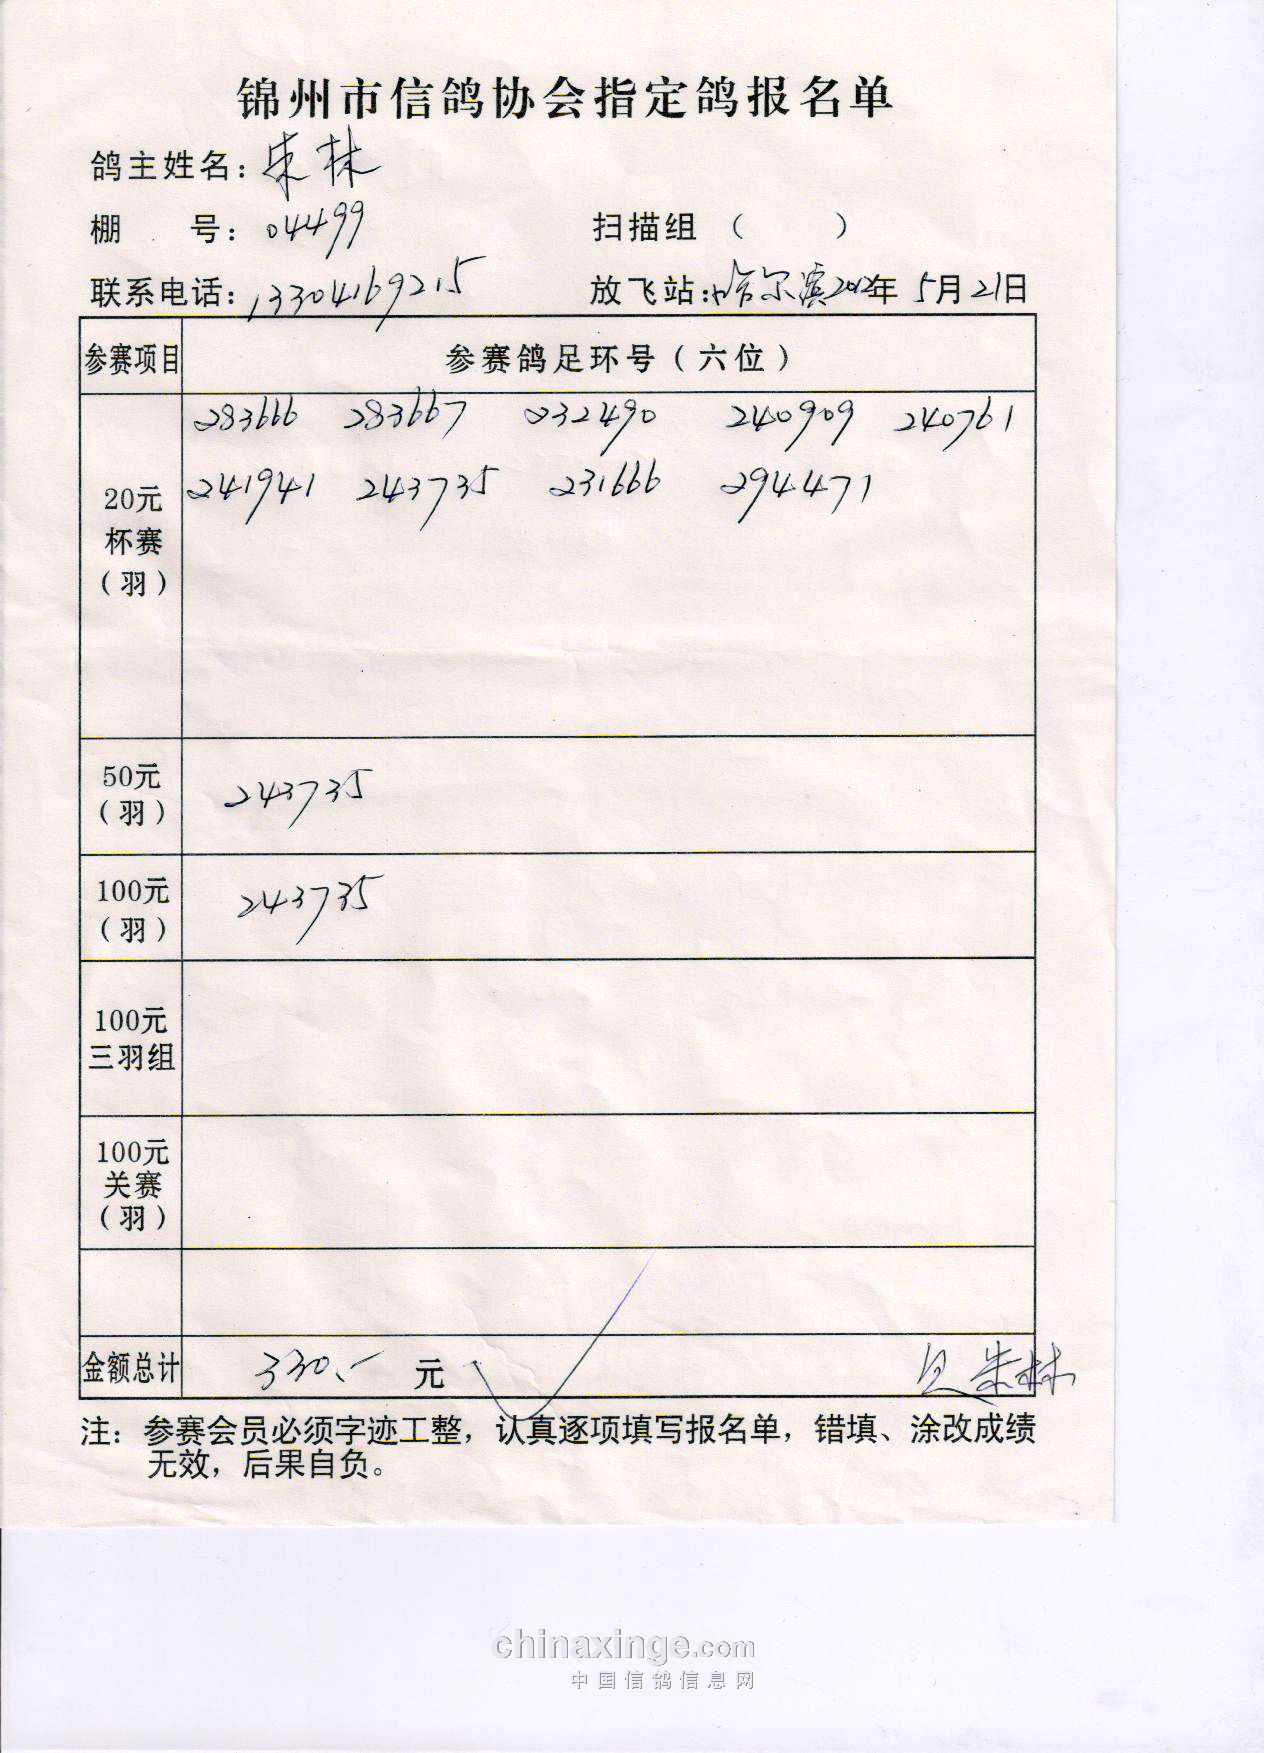 锦州市信鸽协会指定鸽报名单
鸽主姓名：朱林
棚 号：04499 扫描组（ ）
联系电话：13304169215 放飞站：哈尔滨2012年5月21日
参赛项目 参赛鸽足环号（六位）
283666 283667 232490 240909 240761
241941 243735 231666 294471
20元
杯赛
（羽）
50元
（羽）
243735
100元
（羽）
243735
100元
三羽组
100元
关赛
（羽）
金额总计 330.- 元 朱林
注：参赛会员必须字迹工整，认真逐项填写报名单，错填、涂改成绩
无效，后果自负。
chinaxinge.com
中国信鸽信息网